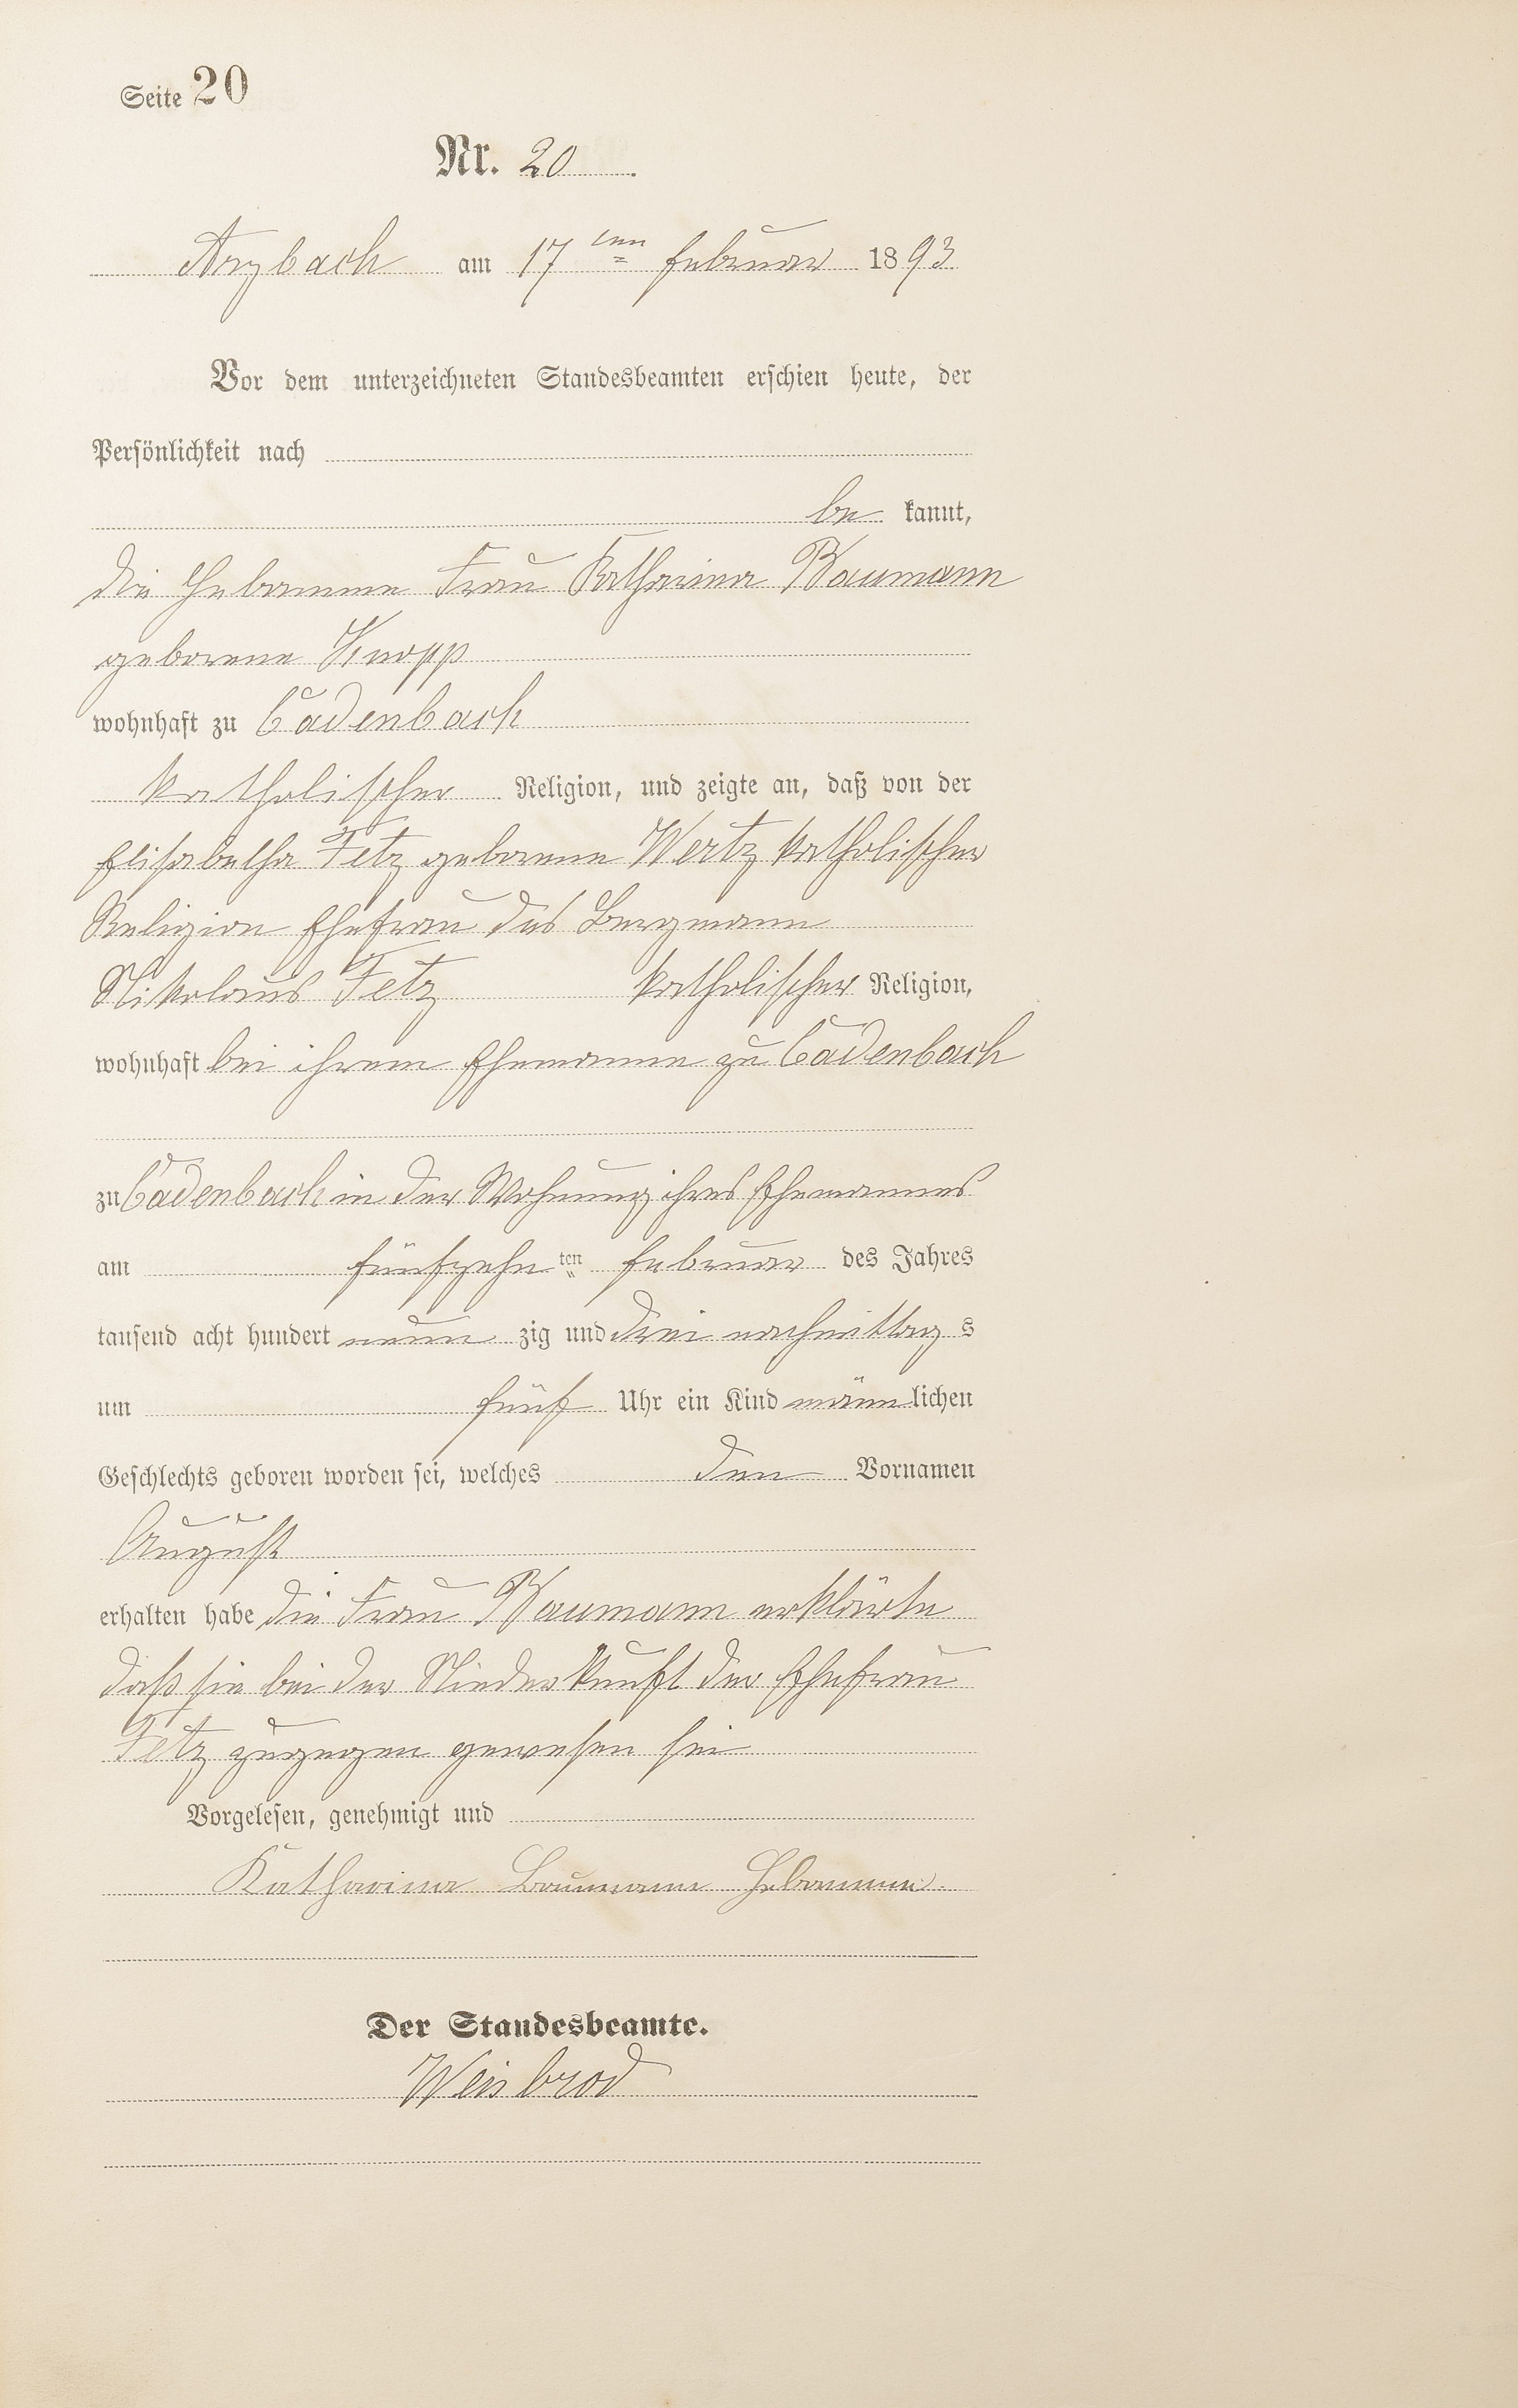 Seite 20
Nr. 20.
Arzbach am 17ten Februar 1893
Vor dem unterzeichneten Standesbeamten erschien heute, der
Persönlichkeit nach
be kannt,
die Hebamme Frau Katharina Baumann
geborene Knopp
wohnhaft zu Cadenbach
katholischer Religion, und zeigte an, daß von der
Elisabetha Fetz geborene Wertz katholischer
Religion Ehefrau des Bergmann
Nikolaus Fetz katholischer Religion,
wohnhaft bei ihrem Ehemanne zu Cadenbach
zu Cadenbach in der Wohnung ihres Ehemannes
am fünfzehn ten Februar des Jahres
tausend acht hundert neun zig und drei nachmittag s
um fünf Uhr ein Kind männ lichen
Geschlechts geboren worden sei, welches den Vornamen
August
erhalten habe die Frau Baumann erklärte
daß sie bei der Niederkunft der Ehefrau
Fetz zugegen gewesen sei
Vorgelesen, genehmigt und
Katharina Baumann Hebamme.
Der Standesbeamte.
Weisbrod